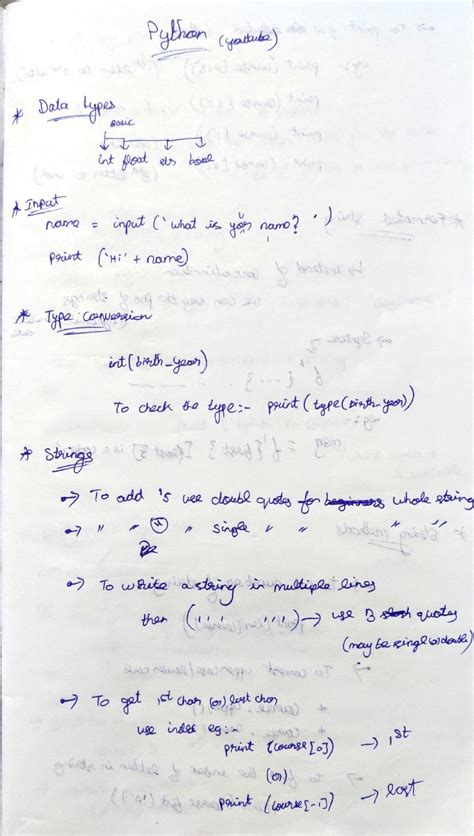 Python (youtube)
* Data types
Basic
int float str bool
* Input
name = input ('what is your name? ')
print ('Hi' + name)
* Type Conversion
int (birth_year)
To check the type:- print (type(birth_year))
* Strings
→ To add 's use double quotes for beginners whole string
→ " " " single " " " "
→ To write a string in multiple lines
then (''' ''') → use 3 quotes
(maybe single (or) double)
→ To get 1st char (or) last char
use index eg:-
print (course[0]) → 1st
(or)
print (course[-1]) → last